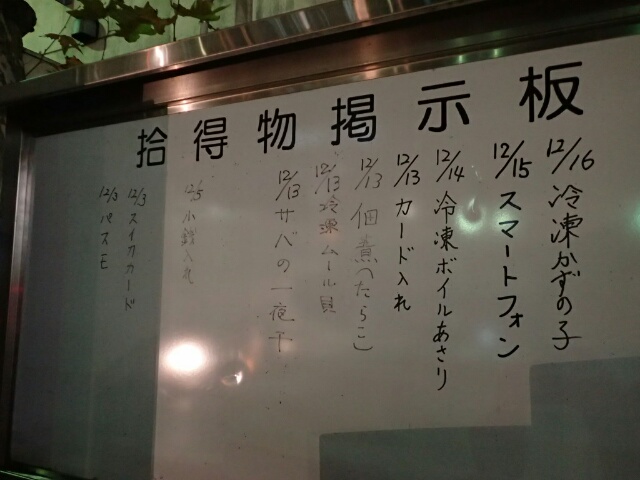 拾得物掲示板
12/16 冷凍かずの子
12/15 スマートフォン
12/14 冷凍ボイルあさり
12/13 カード入れ
12/13 佃煮(たらこ)
12/13 冷凍ムール貝
12/13 サバの一夜干
12/5 小銭入れ
12/3 スイカカード
12/3 パスモ